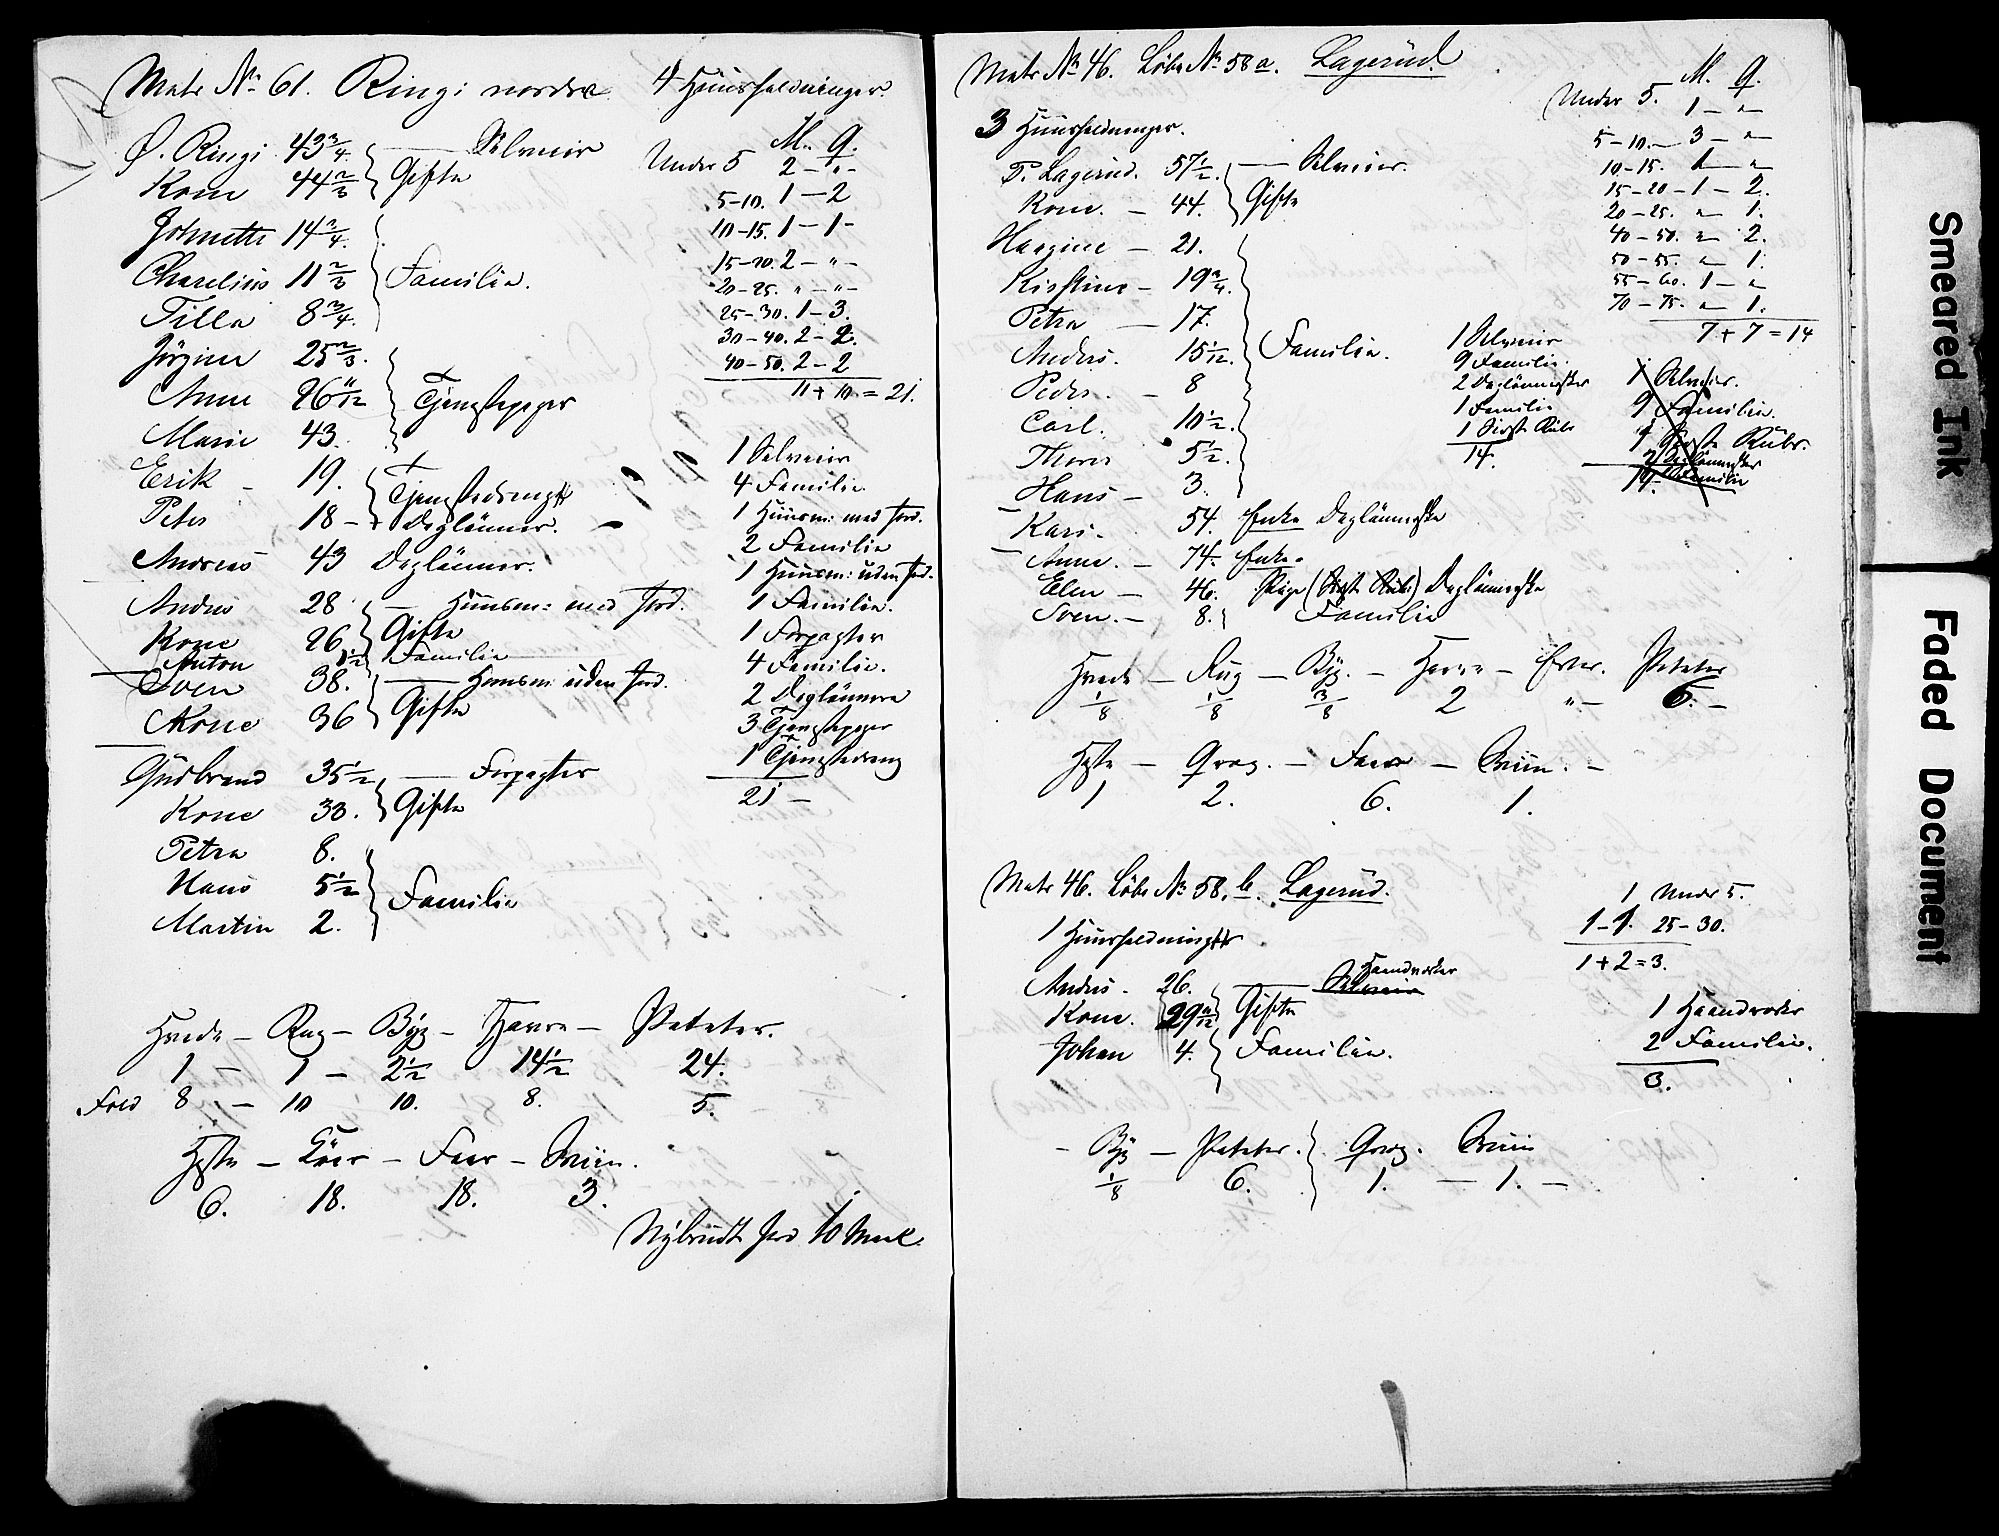 Matr No 61. Ringi nordre 4 Huusholdninger.
Ø. Ringi 43 3/4 — Selveier
Kone 44 2/3 Gifte
Johnette 14 3/4.
Charelius 11 2/3 Familie.
Tilla 8 3/4.
Jörgine 25 2/3.
Anne 26 11/12 Tjenestepiger
Marie 43.
Erik - 19. Tjenestedreng
Peter 18 - Daglönner.
Andreas 43 Daglönner.
Andres 28 — Huusm: med Jord.
Kone 26 Gifte
Anton 1 1/2 Familie
Sven 38. — Huusm: uden Jord.
Kone 36 Gifte
Gudbrand 35 1/2 — Forpagter
Kone 33. Gifte
Petra 8.
Hans 5 1/2 Familie
Martin 2.
M. Q.
Under 5 2 - " -
5-10. 1 - 2
10-15. 1 - 1 -
15-20. 2 - " -
20-25. " - " -
25-30. 1 - 3.
30-40. 2 - 2.
40-50. 2 - 2
11 + 10 = 21.
1 Selveier
4 Familie
1 Huusm: med Jord.
2 Familie
1 Huusm: uden Jord.
1 Familie.
1 Forpagter
4 Familie.
2 Daglönnere
3 Tjenestepiger
1 Tjenestedreng
21 -
Hvede - Rug - Byg - Havre - Poteter.
1 - 1 - 2 1/2 14 1/2 24.
Fold 8 - 10 10. 8. 5.
Heste - Köer - Faar - Sviin.
6. 18. 18. 3.
Nybrudt Jord 10 Maal
Matr No 46. Löbe No 58 a. Lagerud.
3 Huusholdninger.
P. Lagerud. 57 1/2. — Selveier.
Kone. - 44. Gifte
Hargine - 21.
Kirstine - 19 3/4.
Petra - 17.
Anders. 15 1/12. Familie.
Peder. - 8
Carl. 10 1/2.
Thorer 5 1/2.
Hans - 3.
Kari. 54. Enke Daglönnerske
Anne. - 74. Enke.
Elen - 46. Pige (Sidste Rubr.) Daglönnerske
Sven. - 8. Familie
M. Q.
Under 5. 1 - " -
5-10. - 3 - " -
10-15. 1 - " -
15-20 - 1 - 2.
20-25. " - 1.
40-50. " - 2.
50-55. " - 1.
55-60. 1 - " -
70-75. " - 1.
7 + 7 = 14
1 Selveier
9 Familie.
2 Daglönnerske
1 Familie
1 Sidste Rubr
14.
1 Selveier.
9 Familie.
1 Sidste Rubr.
2 Daglönnerske
1 Familie
14.
Hvede - Rug - Byg. - Havre - Erter. Poteter
1/8 1/8 3/8 2 " - 6. -
Heste - Qvæg. - Faar - Sviin. -
1 2. 6. 1.
Matr 46. Löbe No 58. b. Lagerud.
1 Huusholdning
Haandverker
Andres. 26. — Selveier
Kone. 29 11/12 Gifte
Johan 4. Familie.
1 Under 5.
1 - 1. 25-30.
1 + 2 = 3.
1 Haandverker
2 Familie.
3.
- Byg - Poteter. Qvæg. Sviin
1/8 6. 1. - 1. -
Smeared Ink
Faded Document